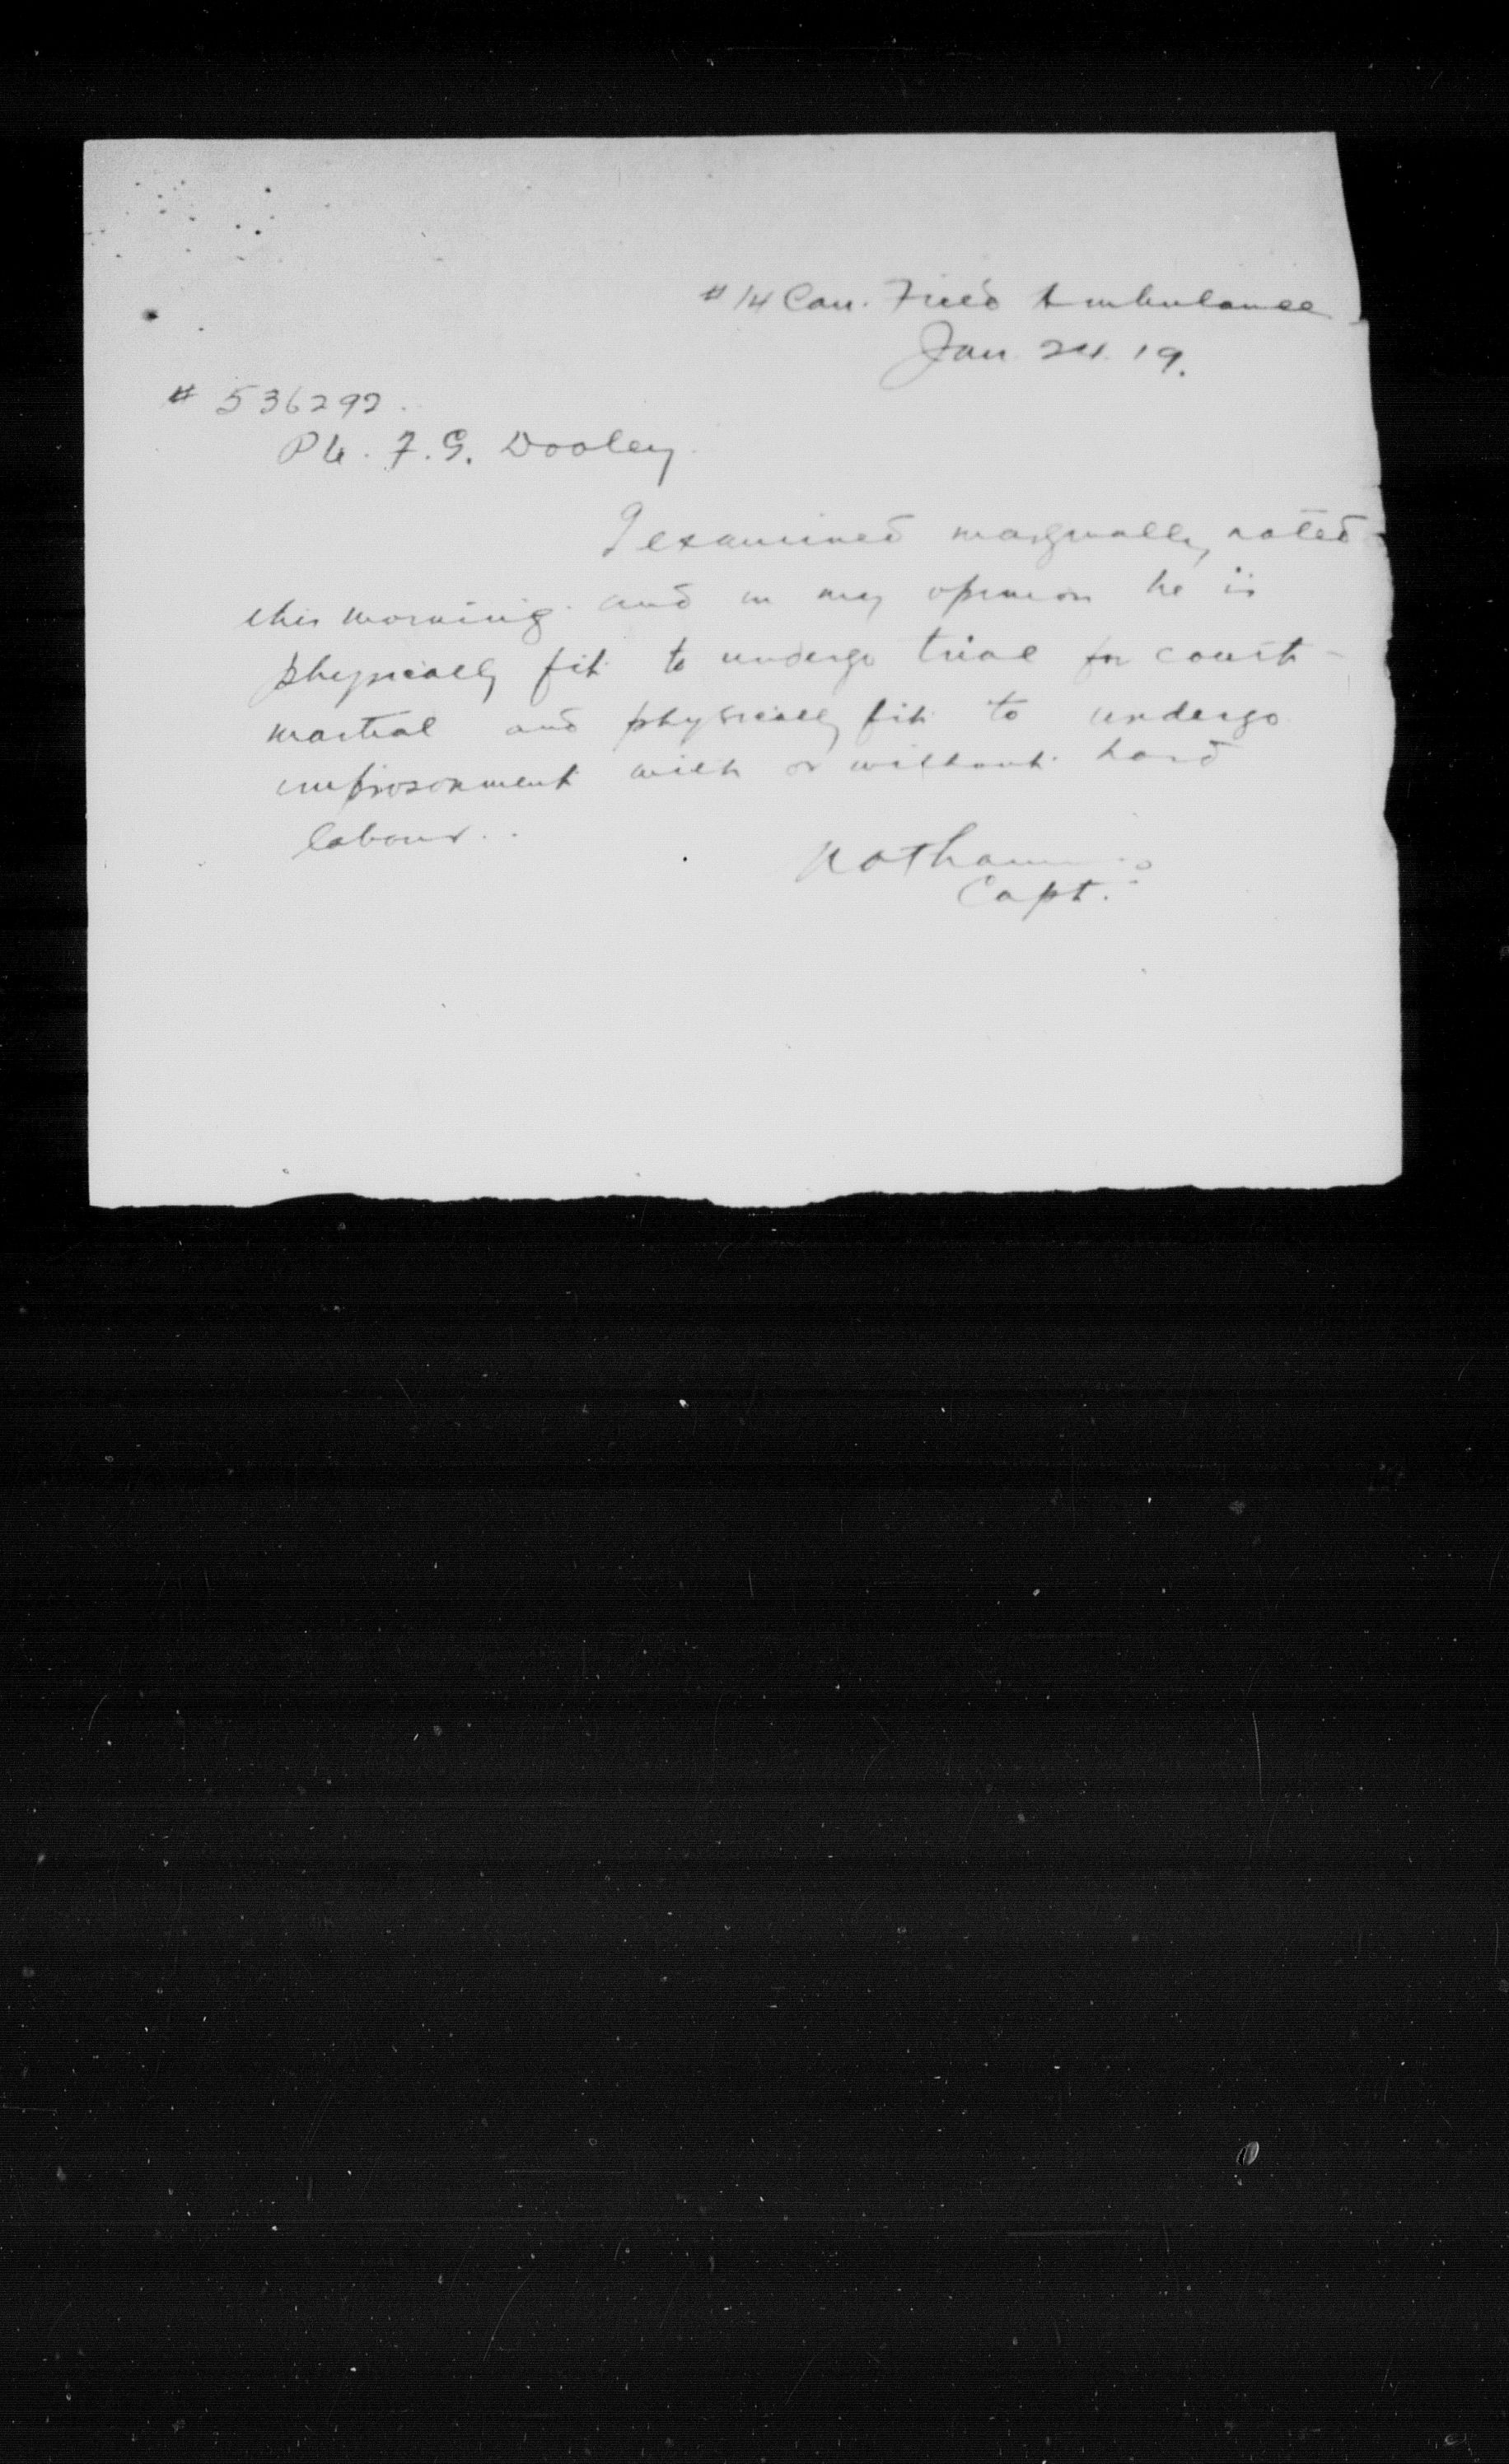 # 14 Can. Field Ambulance
Jan 24. 19.
# 536292.
Pte. F. G. Dooley.
I examined marginally noted
this morning and in my opinion he is
physically fit to undergo trial for court-
martial and physically fit to undergo
imprisonment with or without hard
labour.
Capt.